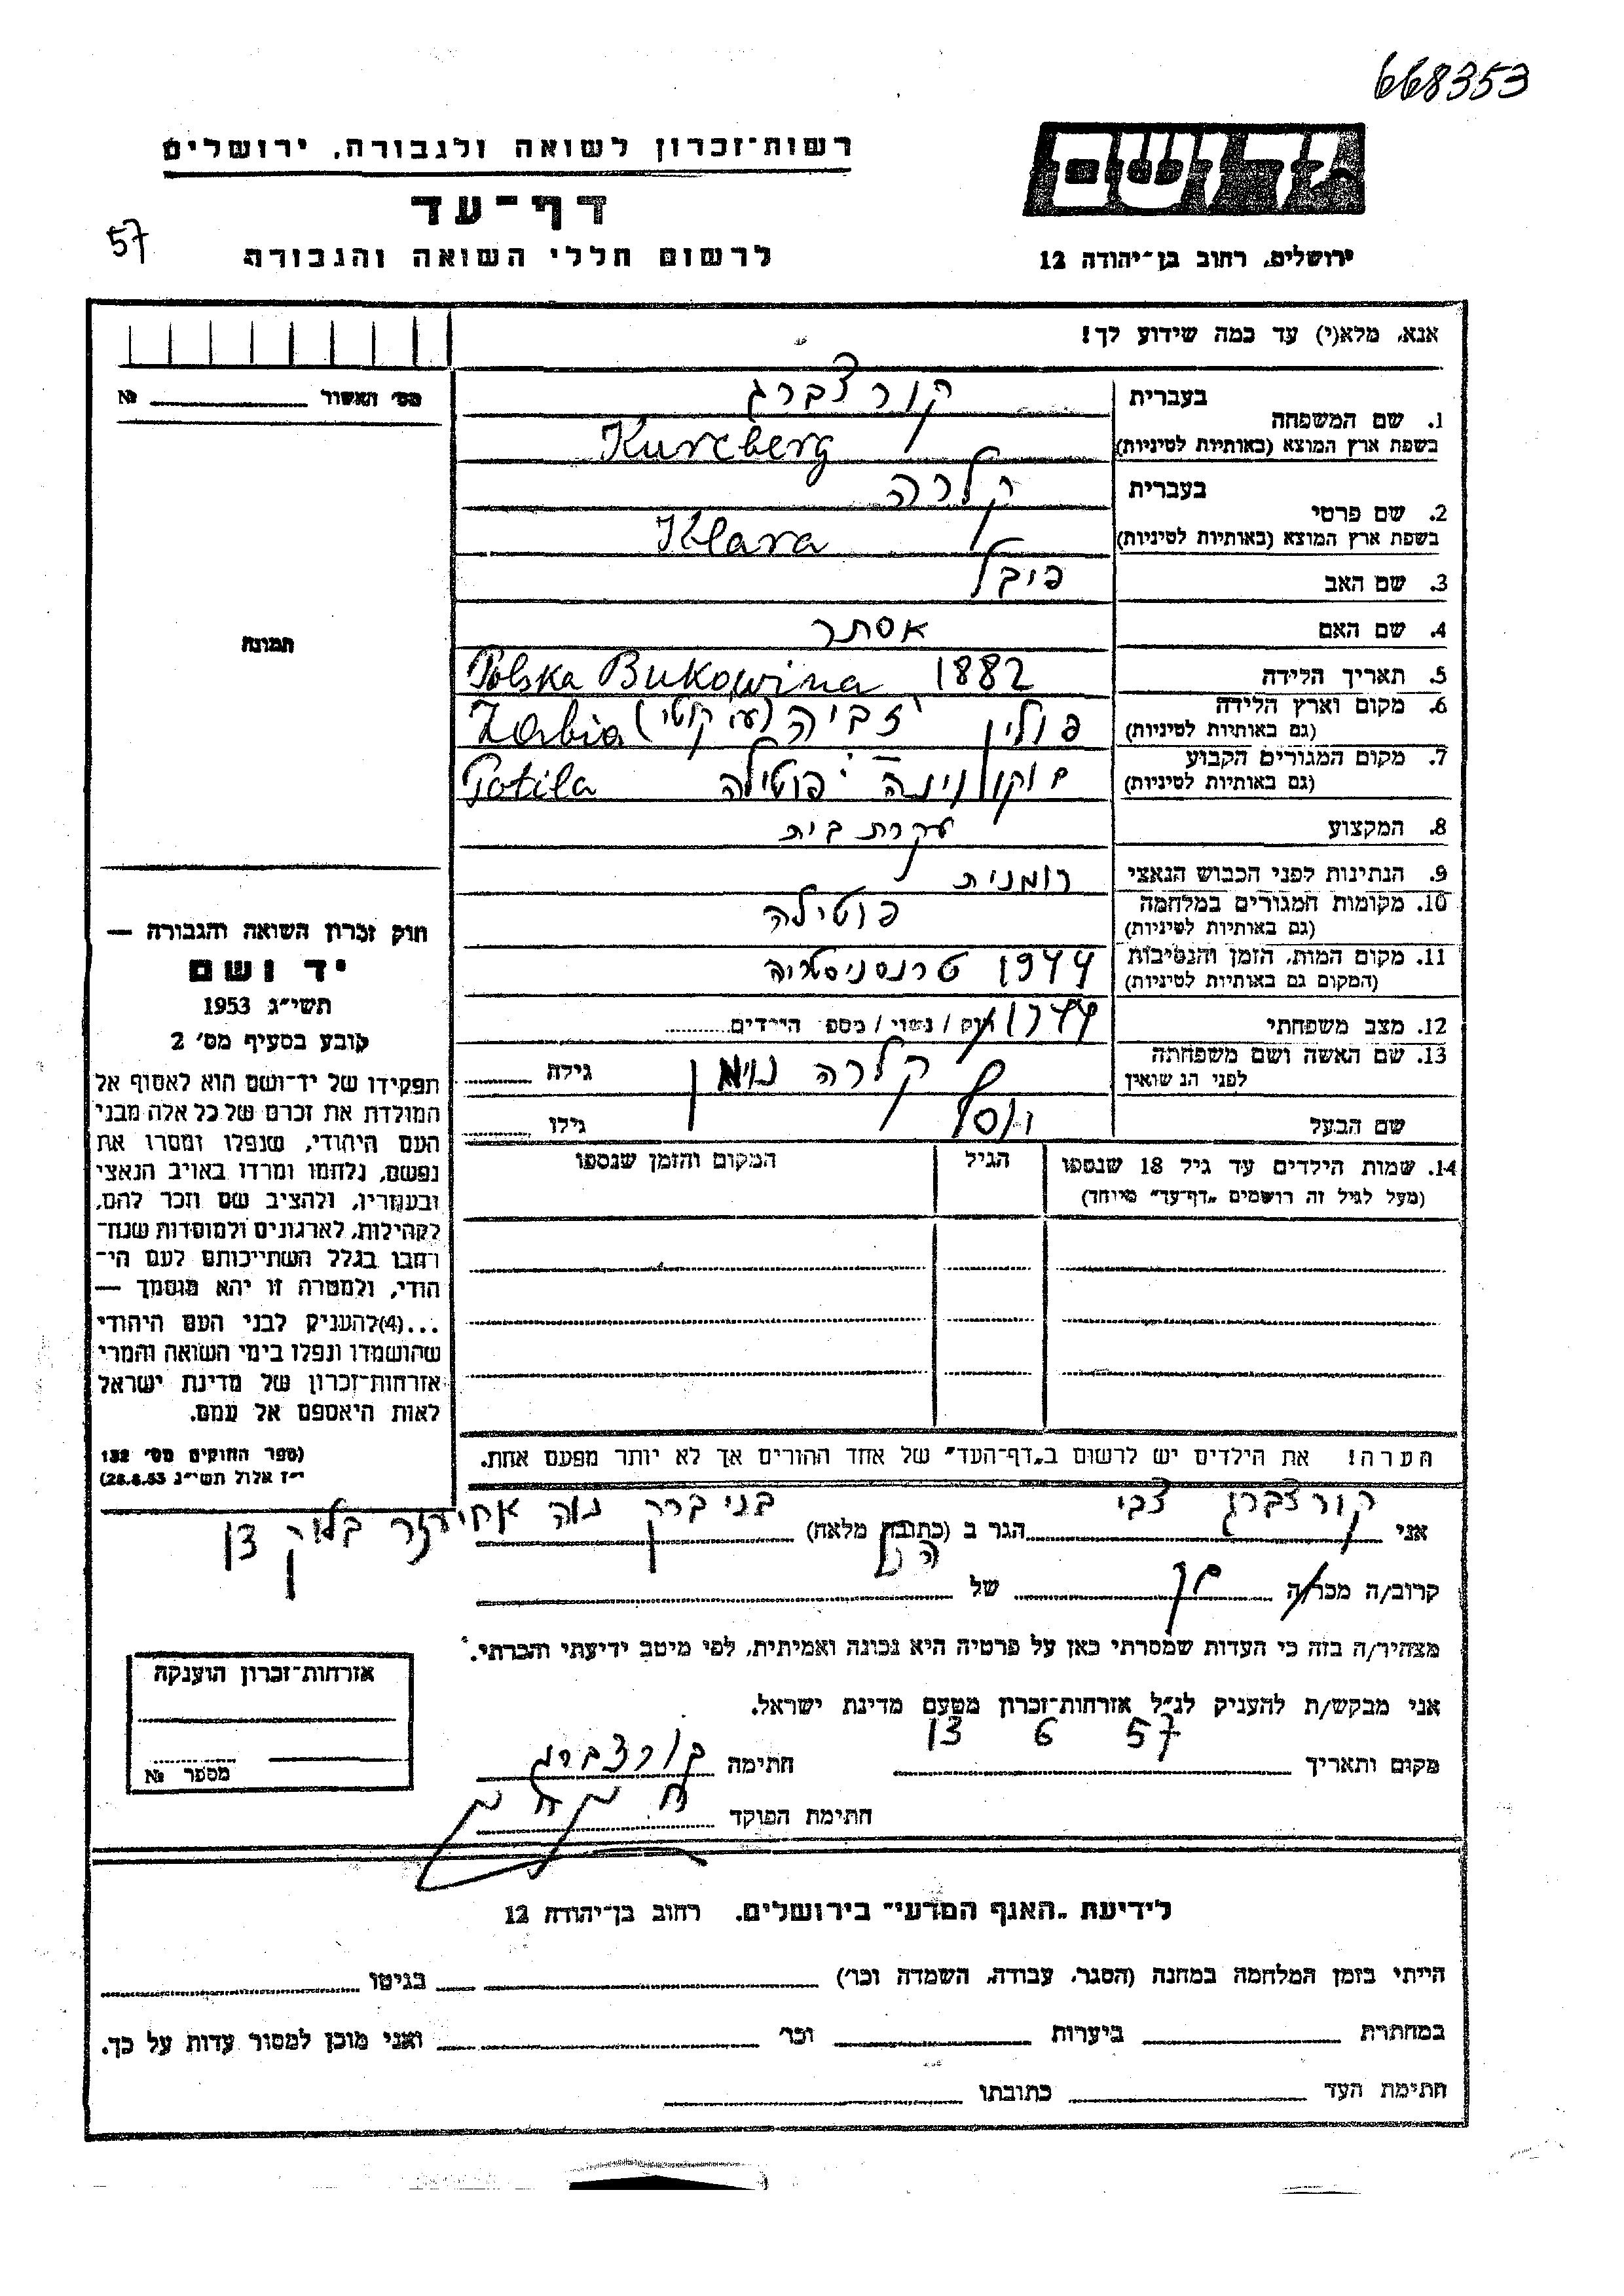 668353
יד ושם
רשות־זכרון לשואה ולגבורה, ירושלים
דף־עד
57
לרשום חללי השואה והגבורה
ירושלים, רחוב בן־יהודה 12
אנא, מלא(י) עד כמה שידוע לך!
מס' האשור № ______
1. שם המשפחה
בעברית
קורצברג
בשפת ארץ המוצא (באותיות לטיניות)
Kurcberg
2. שם פרטי
בעברית
קלרה
בשפת ארץ המוצא (באותיות לטיניות)
Klara
3. שם האב
פיבל
4. שם האם
אסתר
5. תאריך הלידה
1882 Polska Bukowina
6. מקום וארץ הלידה
(גם באותיות לטיניות)
פולין זביה (ע קוטי) Zabia
7. מקום המגורים הקבוע
(גם באותיות לטיניות)
בוקווינה פוטילה Potila
8. המקצוע
עקרת בית
9. הנתינות לפני הכבוש הנאצי
רומנית
10. מקומות המגורים במלחמה
(גם באותיות לטיניות)
פוטילה
11. מקום המות, הזמן והנסיבות
(המקום גם באותיות לטיניות)
1944 טרנסניסטריה
12. מצב משפחתי
רוק / נשוי / מספר הילדים
13. שם האשה ושם משפחתה
לפני הנשואין
קלרה נוימן
גילה
שם הבעל
יוסף
גילו
תמונה
חוק זכרון השואה והגבורה —
יד ושם
תשי"ג 1953
קובע בסעיף מס' 2
תפקידו של יד־ושם הוא לאסוף אל
המולדת את זכרם של כל אלה מבני
העם היהודי, שנפלו ומסרו את
נפשם, נלחמו ומרדו באויב הנאצי
ובעוזריו, ולהציב שם וזכר להם,
לקהילות, לארגונים ולמוסדות שנח־
רחבו בגלל השתייכותם לעם הי־
הודי, ולמטרה זו יהא מוסמך —
...(4) להעניק לבני העם היהודי
שהושמדו ונפלו בימי השואה והמרי
אזרחות־זכרון של מדינת ישראל
לאות היאספם אל עמם.
(ספר החוקים מס' 132
י"ז אלול תשי"ג 28.8.53)
14. שמות הילדים עד גיל 18 שנספו
(מעל לגיל זה רושמים „דף־עד" מיוחד)
הגיל
המקום והזמן שנספו
הערה! את הילדים יש לרשום ב„דף־העד" של אחד ההורים אך לא יותר מפעם אחת.
אני קורצברג צבי הגר ב (כתובת מלאה) בני ברק נוה אחיעזר בלוק 31
קרוב/ה מכר/ה בן של
מצהיר/ה בזה כי העדות שמסרתי כאן על פרטיה היא נכונה ואמיתית, לפי מיטב ידיעתי והכרתי.
אני מבקש/ת להעניק לנ"ל אזרחות־זכרון מטעם מדינת ישראל.
מקום ותאריך 57 6
חתימה קורצברג
חתימת הפוקד
אזרחות־זכרון הוענקה
מספר №
לידיעת „האגף המדעי" בירושלים, רחוב בן־יהודה 12
הייתי בזמן המלחמה במחנה (הסגר, עבודה, השמדה וכר') ______ בגיטו ______
במחתרת ______ ביערות ______ וכר' ______ ואני מוכן למסור עדות על כך.
חתימת העד ______ כתובתו ______